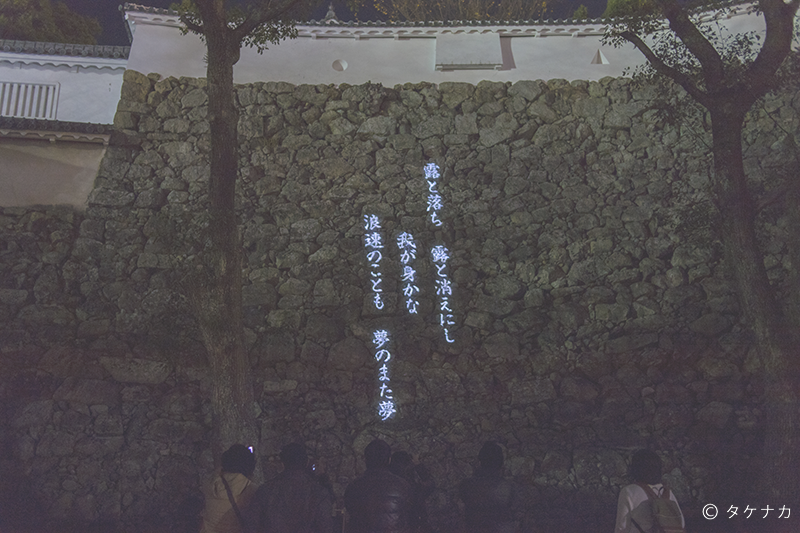 露と落ち 露と消えにし
我が身かな
浪速のことも 夢のまた夢
© タケナカ